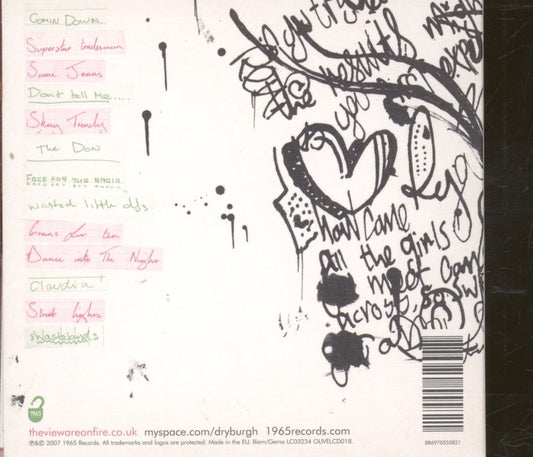 Comin Down...
Superstar tradesman
Same Jeans
Dont tell Me....
Skag Trendy
The Don
FACE FOR THE RADIO
wasted little djs
Grans for tea
Dance into The Night
Claudia
Street lights
Wastelands
if you try
the results
you
how came
all the girls
I most came
across, so
1965
theviewareonfire.co.uk myspace.com/dryburgh 1965records.com
℗&© 2007 1965 Records. All trademarks and logos are protected. Made in the EU. Biem/Gema LC03234 OLIVELCD018.
886970555821